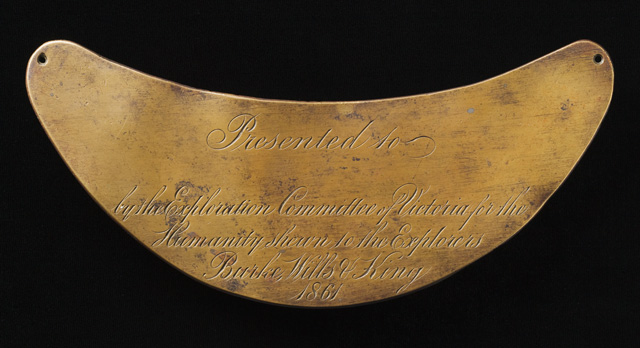 Presented to
by the Exploration Committee of Victoria for the
Humanity shewn to the Explorers
Burke, Wills & King
1861